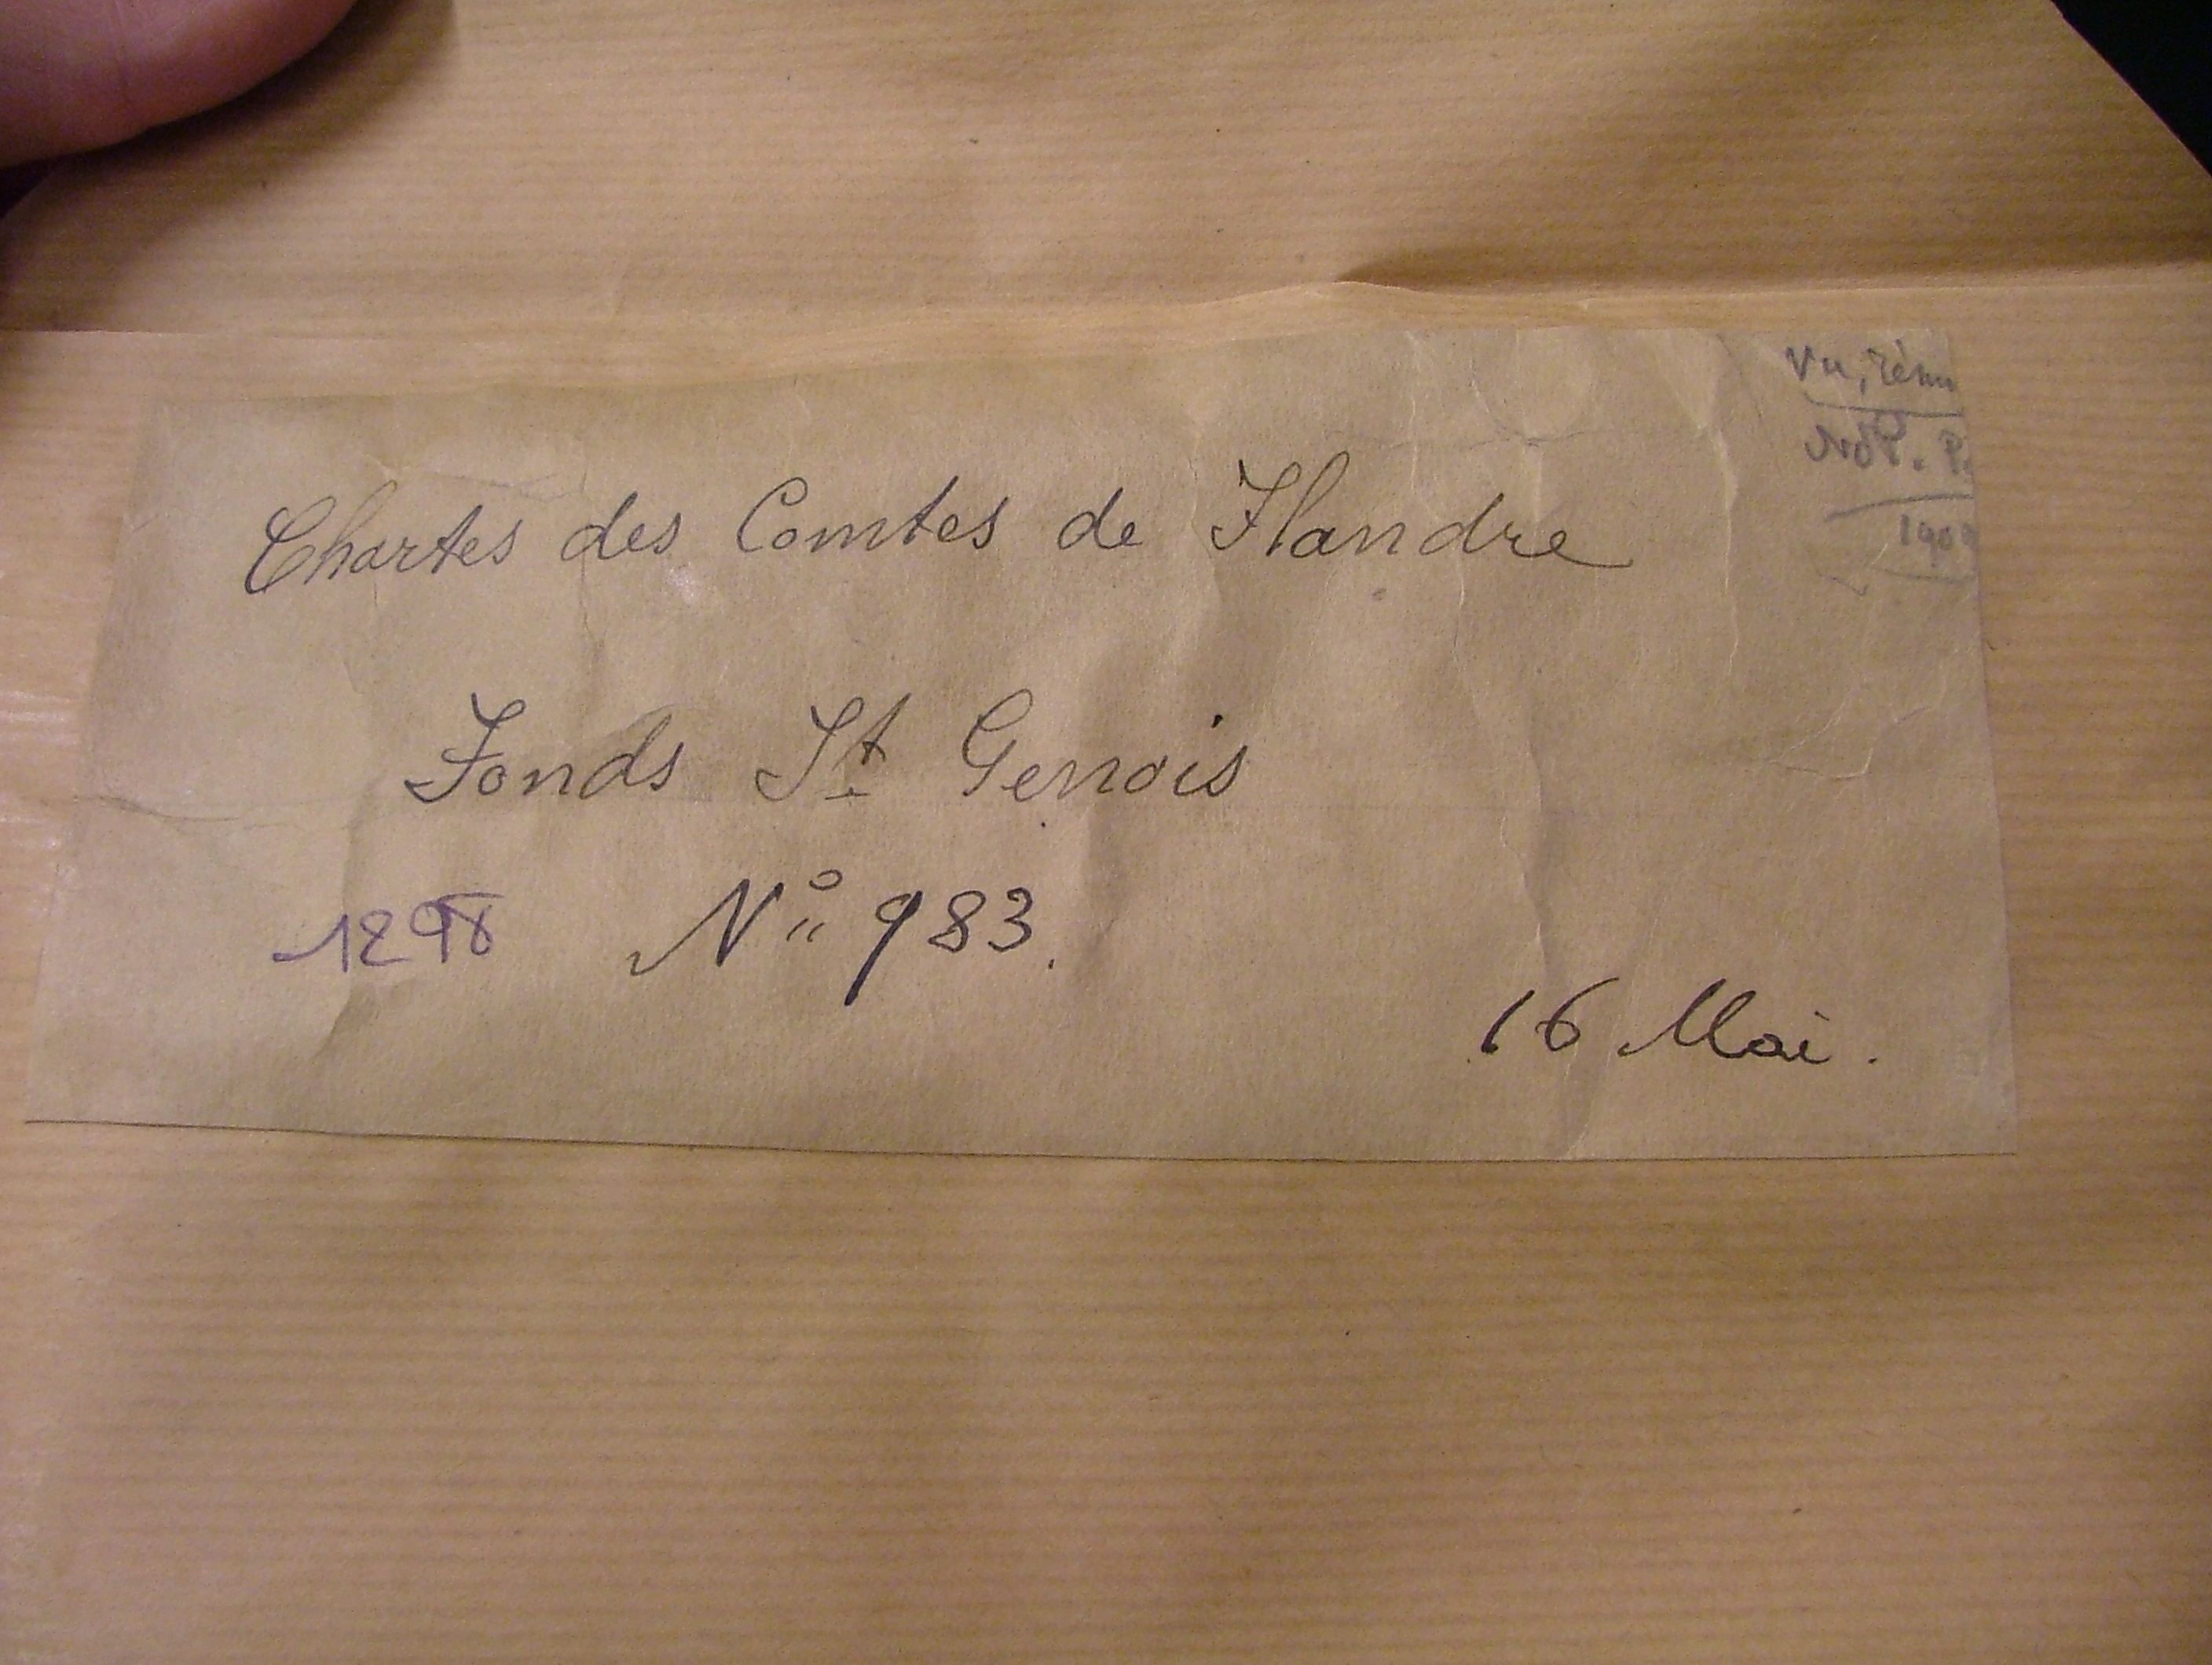 Vu,
Chartes des Comtes de Flandre
Fonds St Genois
1298 No 983.
16 Mai.